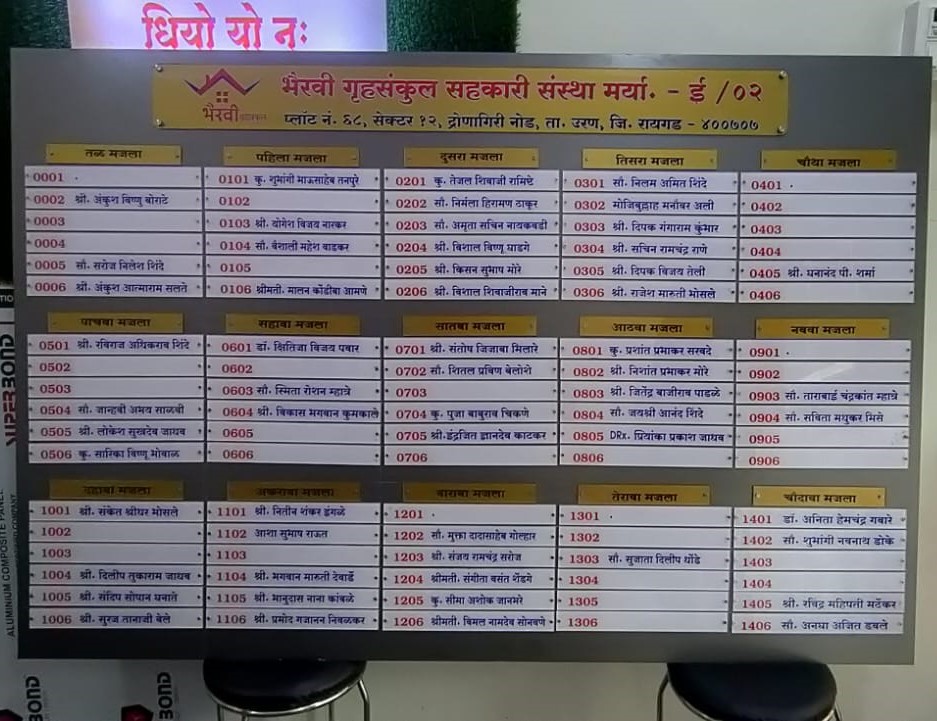 धियो यो नः
भैरवी गृहसंकुल सहकारी संस्था मर्या. - ई /०२
भैरवी
प्लॉट नं. ६८, सेक्टर १२, द्रोणागिरी नोड, ता. उरण, जि. रायगड - ४००७०७
तळ मजला
0001
0002 श्री. अंकुश विष्णु बोराटे
0003
0004
0005 सौ. सरोज निलेश शिंदे
0006 श्री. अंकुश आत्माराम सलते
पहिला मजला
0101 कु. शुभांगी भाऊसाहेब तनपुरे
0102
0103 श्री. योगेश विजय नारकर
0104 सौ. वैशाली महेश वाडकर
0105
0106 श्रीमती. मालन कोंडीबा आमणे
दुसरा मजला
0201 कु. तेजल शिवाजी रामिष्टे
0202 सौ. निर्मला हिरामण ठाकूर
0203 सौ. अमृता सचिन नायकवडी
0204 श्री. विशाल विष्णू घाडगे
0205 श्री. किसन सुभाष मोरे
0206 श्री. विशाल शिवाजीराव माने
तिसरा मजला
0301 सौ. निलम अमित शिंदे
0302 मोजिबुल्लाह मनौवर अली
0303 श्री. दिपक गंगाराम कुंभार
0304 श्री. सचिन रामचंद्र राणे
0305 श्री. दिपक विजय तेली
0306 श्री. राजेश मारुती भोसले
चौथा मजला
0401
0402
0403
0404
0405 श्री. घनानंद पी. शर्मा
0406
पाचवा मजला
0501 श्री. रविराज अधिकराव शिंदे
0502
0503
0504 सौ. जान्हवी अभय साळवी
0505 श्री. लोकेश सुखदेव जाधव
0506 कु. सारिका विष्णू भोवाळ
सहावा मजला
0601 डॉ. क्षितिजा विजय पवार
0602
0603 सौ. स्मिता रोशन म्हात्रे
0604 श्री. विकास भगवान कुमकाले
0605
0606
सातवा मजला
0701 श्री. संतोष जिजाबा भिलारे
0702 सौ. शितल प्रविण बेलोशे
0703
0704 कु. पुजा बाबुराव चिकणे
0705 श्री. इंद्रजित ज्ञानदेव काटकर
0706
आठवा मजला
0801 कु. प्रशांत प्रभाकर सरवदे
0802 श्री. निशांत प्रभाकर मोरे
0803 श्री. जितेंद्र बाजीराव पाडळे
0804 सौ. जयश्री आनंद शिंदे
0805 DRx. प्रियांका प्रकाश जाधव
0806
नववा मजला
0901
0902
0903 सौ. ताराबाई चंद्रकांत म्हात्रे
0904 सौ. सविता मधुकर भिसे
0905
0906
दहावा मजला
1001 श्री. संकेत श्रीधर भोसले
1002
1003
1004 श्री. दिलीप तुकाराम जाधव
1005 श्री. संदिप सोपान घनाते
1006 श्री. सुरज तानाजी बेले
अकरावा मजला
1101 श्री. नितीन शंकर इंगळे
1102 आशा सुभाष राऊत
1103
1104 श्री. भगवान मारुती देवार्डे
1105 श्री. भानुदास नाना कांबळे
1106 श्री. प्रमोद गजानन निवळकर
बारावा मजला
1201
1202 सौ. मुक्ता दादासाहेब गोल्हार
1203 श्री. संजय रामचंद्र सरोज
1204 श्रीमती. संगीता वसंत शेंडगे
1205 कु. सीमा अशोक जानभरे
1206 श्रीमती. विमल नामदेव सोनवणे
तेरावा मजला
1301
1302
1303 सौ. सुजाता दिलीप धोंडे
1304
1305
1306
चौदावा मजला
1401 डॉ. अनिता हेमचंद्र गबारे
1402 सौ. शुभांगी नवनाथ डोके
1403
1404
1405 श्री. रविंद्र महिपती मर्ढेकर
1406 सौ. अनघा अजित डबले
ALUMINIUM COMPOSITE PANEL